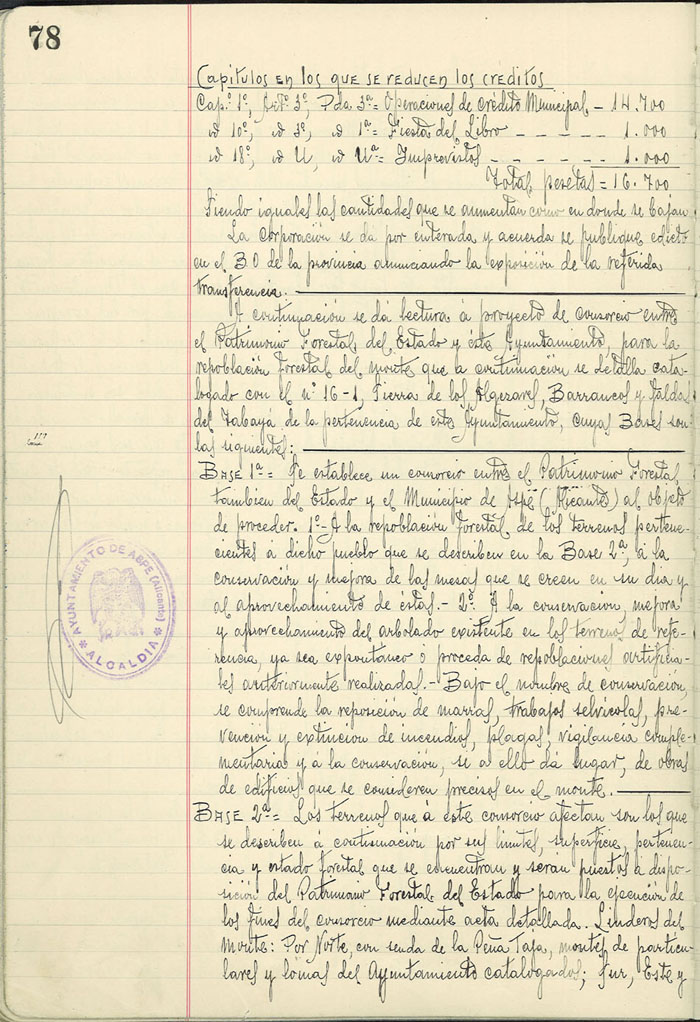 78
Capitulos en los que se reducen los creditos
Cap.º 1º, Art.º 3º, Pda 3ª = Operaciones de Crédito Municipal - 14.700
id 10º, id 3º, id 1ª = Fiesta del Libro - - - - - 1.000
id 18º, id U, id Uª = Imprevistos - - - - - 1.000
Total pesetas = 16.700
Siendo iguales las cantidades que se aumentan como en donde se bajan
La Corporación se dá por enterada y acuerda se publique edicto
en el B O de la provincia anunciando la exposición de la referida
transferencia.
A continuación se dá lectura á proyecto de consorcio entre
el Patrimonio Forestal del Estado y éste Ayuntamiento, para la
repoblación forestal del monte que a continuación se detalla cata-
logado con el nº 16-1, Sierra de los Algezares, Barrancos y Faldas
del Tabayá de la pertenencia de este Ayuntamiento, cuyas Bases son
las siguientes:
BASE 1ª = Se establece un consorcio entre el Patrimonio Forestal
tambien del Estado y el Municipio de Aspe (Alicante) al objeto
de proceder. 1º- A la repoblación forestal de los terrenos pertene-
cientes á dicho pueblo que se describen en la Base 2ª, á la
conservación y mejora de las masas que se creen en su dia y
al aprovechamiento de éstas.- 2º. A la conservación, mejora
y aprovechamiento del arbolado existente en los terrenos de refe-
rencia, ya sea expontaneo ó proceda de repoblaciones artificia-
les anteriormente realizadas.- Bajo el nombre de conservación,
se comprende la reposición de marras, trabajos selvicolas, pre-
vención y extinción de incendios, plagas, vigilancia comple-
mentaria y á la conservación, si a ello dá lugar, de obras
de edificios que se consideren precisos en el monte.
BASE 2ª = Los terrenos que á este consorcio afectan son los que
se describen á continuación por sus limites, superficie, pertenen-
cia y estado forestal que se encuentran y serán puestos á dispo-
sición del Patrimonio Forestal del Estado para la ejecución de
los fines del consorcio mediante acta detallada. Linderos del
Monte: Por Norte, con senda de la Peña Taja, montes de particu-
lares y lomas del Ayuntamiento catalogados; Sur, Este y
AYUNTAMIENTO DE ASPE (Alicante)
ALCALDIA